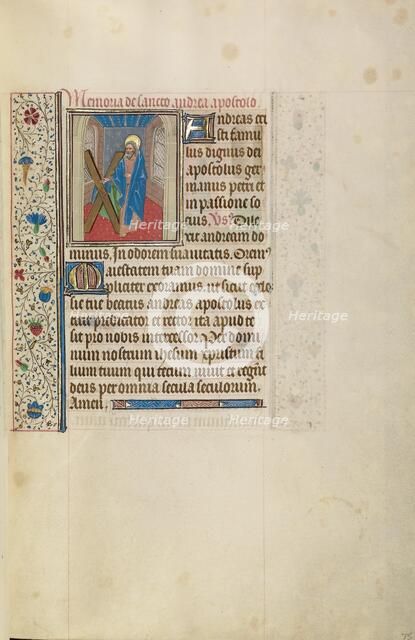 Memoria de sancto andrea apostolo.
Andreas cri
sti famu
lus dignus dei
apostolus ger
manus petri et
in passione so
cius. Vs. Dile
xit andream do
minus, In odorem suauitatis. Orem
Maiestatem tuam domine sup
pliciter exoramus. ut sicut eccle
sie tue beatus andreas apostolus ex
titit predicator et rector ita apud te
sit pro nobis intercessor Per domi
num nostrum ihesum xpristum fi
lium tuum qui tecum uiuit et regnat
deus per omnia secula seculorum.
Amen
Heritage
Heritage
Heritage
Heritage